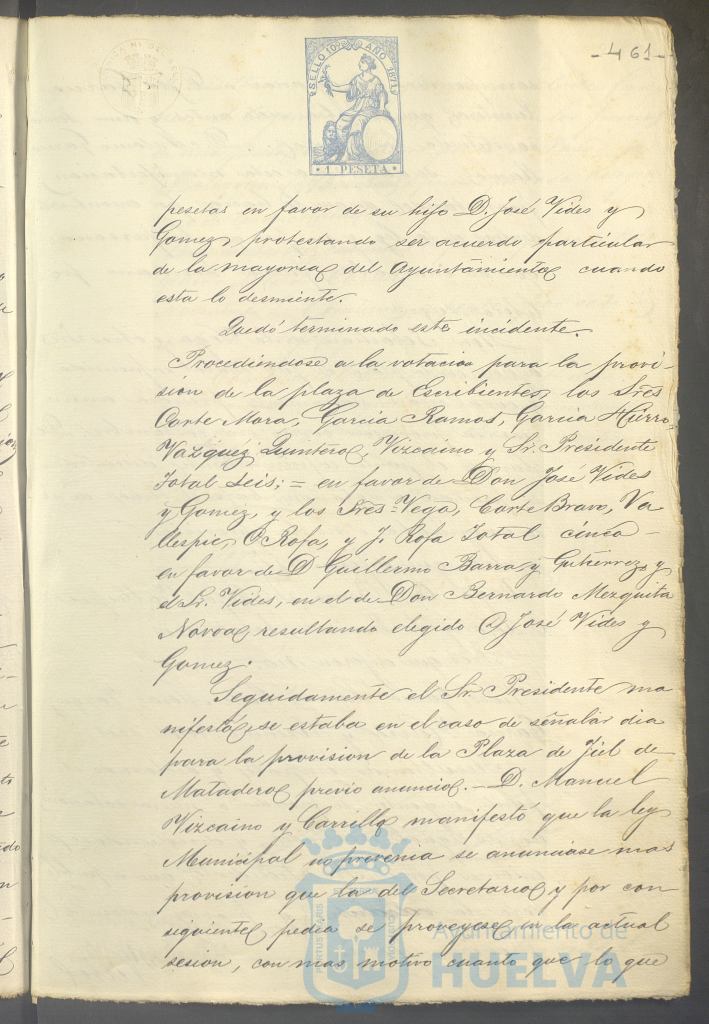 -461-
SELLO 10º AÑO 1871
1 PESETA
pesetas en favor de su hijo D. José Vides y
Gomez, protestando ser acuerdo particular
de la mayoria del Ayuntamiento cuando
esta lo desmiente.
Quedó terminado este incidente.
Procediendose a la votacion para la provi-
sion de la plaza de Escribiente, los Sres
Corte Mora, Garcia Ramos, Garcia Hierro,
Vazquez, Quintero, Vizcaino y Sr. Presidente
Total Seis; = en favor de Don José Vides
y Gomez, y los Sres = Vega, Corte Bravo, Va
llespin, O Rofa, y J. Rofa Total cinco -
en favor de D Guillermo Barra y Gutierrez, y
el Sr. Vides, en el de Don Bernardo Mezquita
Novoa, resultando elegido D José Vides y
Gomez.
Seguidamente el Sr. Presidente ma
nifestó, se estaba en el caso de señalar dia
para la provision de la Plaza de Fiel de
Matadero previo anuncio. - D. Manuel
Vizcaino y Carrello manifestó que la ley
Municipal no prevenia se anunciase mas
provision que la del Secretario y por con
siguiente pedia se proveyese en la actual
sesion, con mas motivo cuanto que lo que
Ayuntamiento de
HUELVA